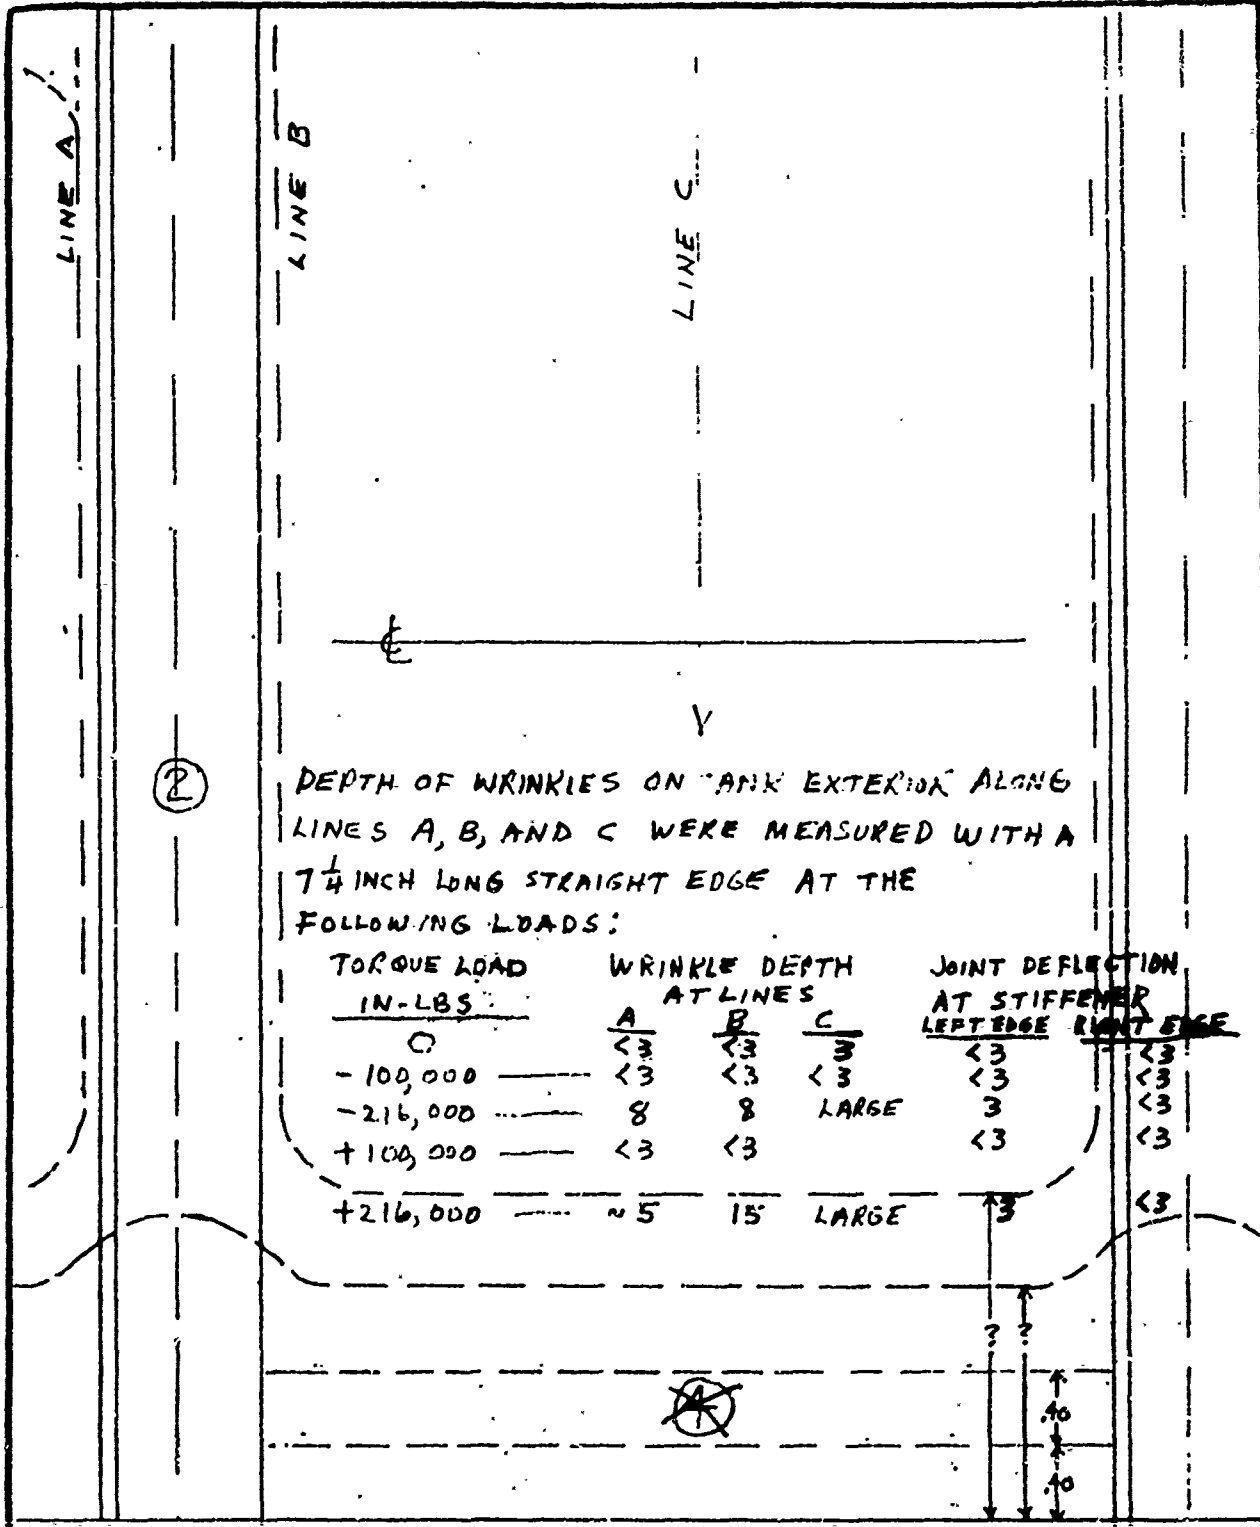 LINE A
LINE B
LINE C
℄
Y
2
DEPTH OF WRINKLES ON TANK EXTERIOR ALONG
LINES A, B, AND C WERE MEASURED WITH A
7 1/4 INCH LONG STRAIGHT EDGE AT THE
FOLLOWING LOADS:
TORQUE LOAD WRINKLE DEPTH JOINT DEFLECTION
IN-LBS AT LINES AT STIFFENER
A B C LEFT EDGE RIGHT EDGE
0 <3 <3 3 <3 <3
- 100,000 <3 <3 <3 <3 <3
- 216,000 8 8 LARGE 3 <3
+ 100,000 <3 <3 <3 <3
+216,000 ~5 15 LARGE 3 <3
? ?
.40
.40